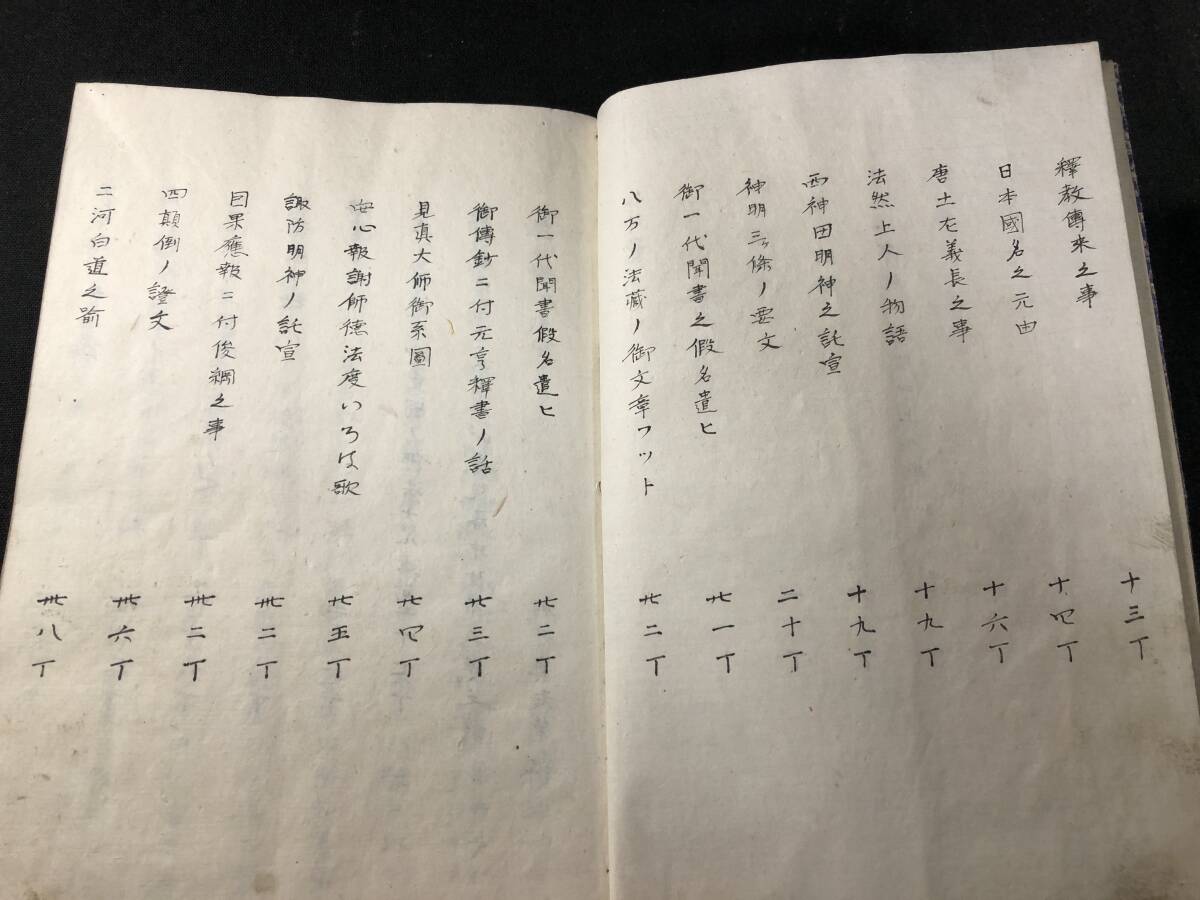 釋教傳来之事 十三丁
日本國名之元由 十四丁
唐土左義長之事 十六丁
法然上人ノ物語 十九丁
西神田明神之託宣 十九丁
神明三ヶ條ノ要文 二十丁
御一代聞書之假名遣ヒ 廿一丁
八万ノ法藏ノ御文章ワット 廿二丁
御一代聞書假名遣ヒ 廿二丁
御傳鈔ニ付元亨釋書ノ話 廿三丁
見真大師御系圖 廿四丁
安心報謝師德法度いろは歌 廿五丁
諏訪明神ノ託宣 卅二丁
因果應報ニ付俊綱之事 卅二丁
四顛倒ノ證文 卅六丁
二河白道之喻 卅八丁